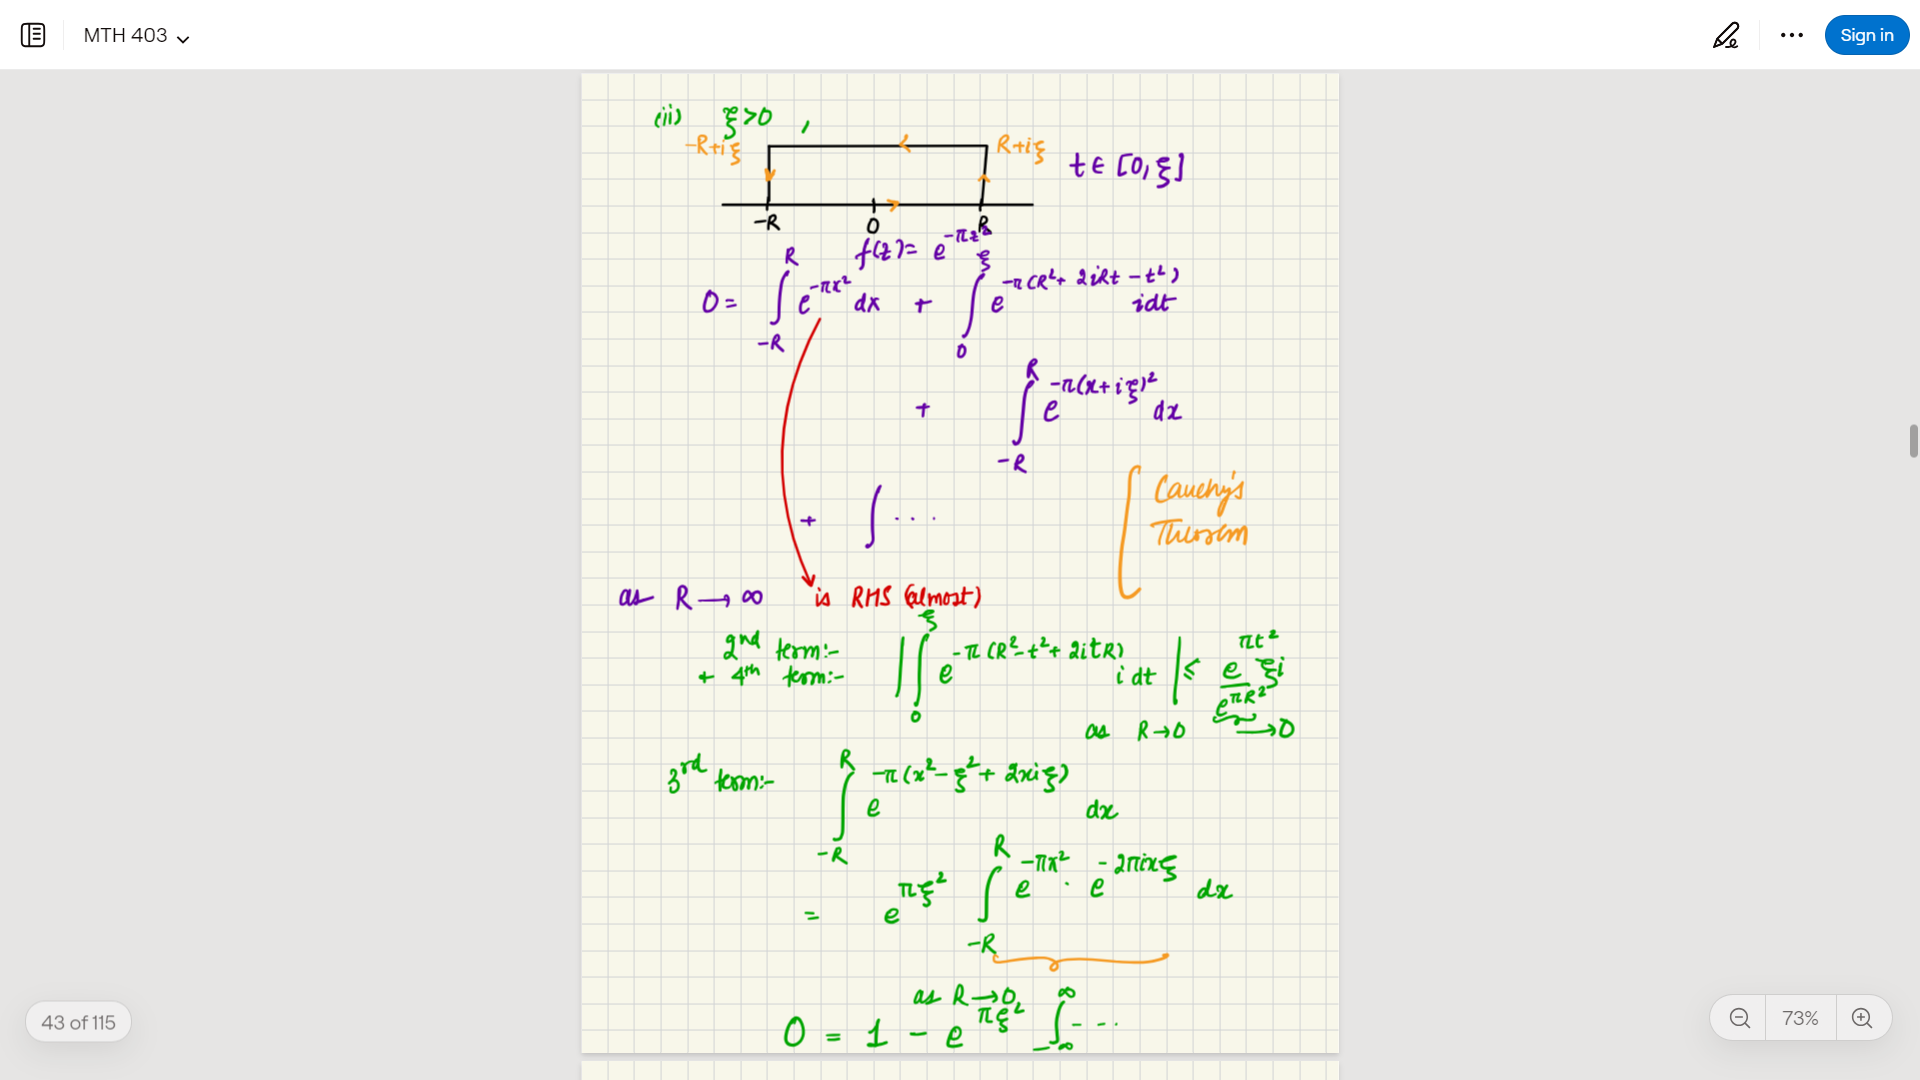 MTH 403
Sign in
(ii) ξ>0 ,
-R+iξ R+iξ t ∈ [0, ξ]
-R 0 R
f(z)= e^{-πz²}
0 = ∫_{-R}^{R} e^{-πx²} dx + ∫_{0}^{ξ} e^{-π(R²+ 2iRt - t²)} idt
+ ∫_{-R}^{R} e^{-π(x+iξ)²} dx
+ ∫ . . .
Cauchy's
Theorem
as R → ∞ is RHS (almost)
2nd term:-
+ 4th term:- | ∫_{0}^{ξ} e^{-π(R²-t²+2itR)} i dt | ≤ e^{πt²}/e^{πR²} ξi
as R→0 →0
3rd term:- ∫_{-R}^{R} e^{-π(x²-ξ²+ 2xiξ)} dx
= e^{πξ²} ∫_{-R}^{R} e^{-πx²} · e^{-2πixξ} dx
as R→0,
0 = 1 - e^{πξ²} ∫_{-∞}^{∞} - - -
43 of 115
73%